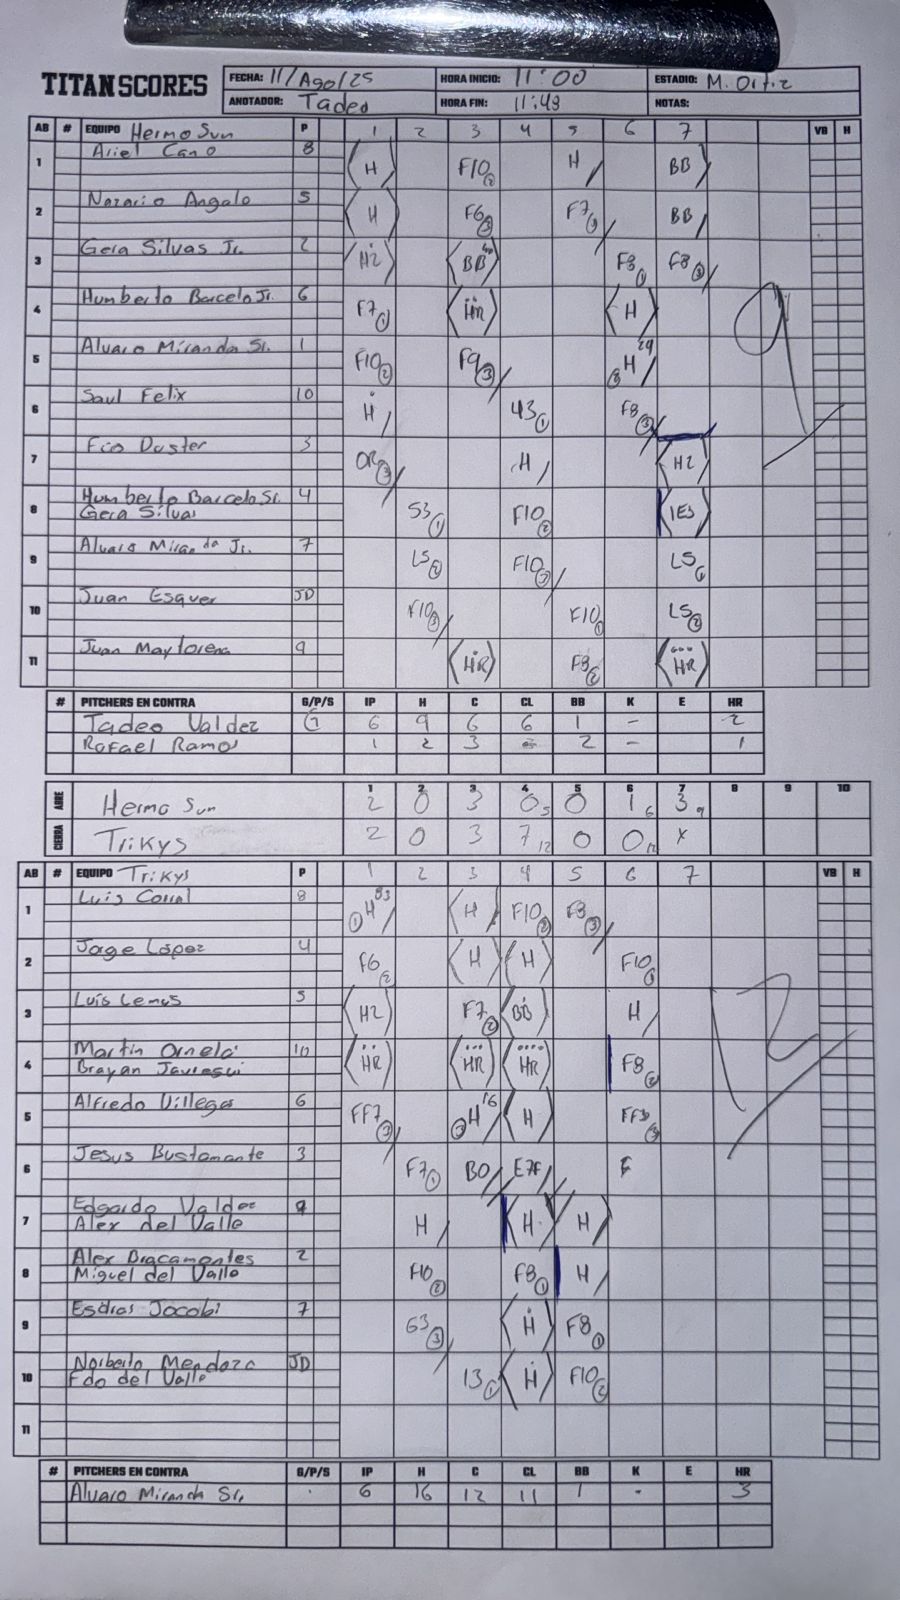 TITAN SCORES
FECHA: 11/Ago/25 HORA INICIO: 11:00 ESTADIO: M. Ortiz
ANOTADOR: Tadeo HORA FIN: 11:49 NOTAS:
AB # EQUIPO Hermo Sun P 1 2 3 4 5 6 7 VB H
1 Ariel Cano 8 H F10② H BB
2 Nazario Angalo 5 H F6 F7 BB
3 Gera Silvas Jr. 2 H2 BB F8① F8③
4 Humberto Barcelo Jr. 6 F7① HR H
5 Alvaro Miranda Sr. 1 F10② F9③ H
6 Saul Felix 10 H 43① F8③
7 Fco Duster 3 OR③ H H2
8 Humberto Barcelo Sr. 4 53① F10② 1E3
Gera Silvas
9 Alvaro Miranda Jr. 7 L5② F10③ L5
10 Juan Esquer JD F10③ F10① L5②
11 Juan Maytorena 9 HR F8② HR
9
# PITCHERS EN CONTRA G/P/S IP H C CL BB K E HR
Tadeo Valdez G 6 9 6 6 1 - 2
Rafael Ramos 1 2 3 2 - 1
1 2 3 4 5 6 7 8 9 10
ABRE Hermo Sun 2 0 3 0 5 0 1 6 3 9
CIERRA Trikys 2 0 3 7 12 0 0 12 x
AB # EQUIPO Trikys P 1 2 3 4 5 6 7 VB H
1 Luis Corral 8 ① H 83 H F10② F8③
2 Jorge López 4 F6② H H F10①
3 Luis Lemus 5 H2 F7② BB H
4 Martin Ornela 10 HR HR HR F8②
Brayan Jauregui
5 Alfredo Villegas 6 FF7③ H 16 H FF3③
6 Jesus Bustamante 3 F7① BO E7F
7 Edgardo Valdez 9 H H H
Alex del Valle
8 Alex Bracamontes 2 F10② F8① H
Miguel del Valle
9 Esdras Jacobi 7 63③ H F8①
10 Norberto Mendoza JD 13① H F10②
Fdo del Valle
11
12
# PITCHERS EN CONTRA G/P/S IP H C CL BB K E HR
Alvaro Miranda Sr. . 6 16 12 11 1 - 3